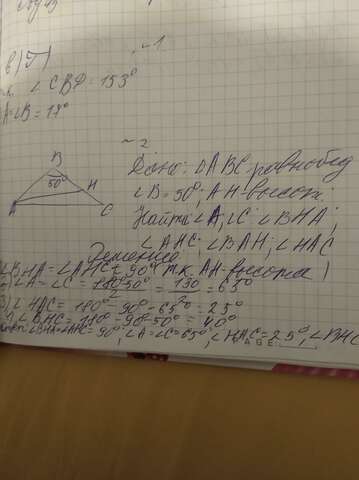 ~ 1
∠CBD = 153°
∠B = 17°
~ 2
B
50°
H
A
C
Дано: △ABC равнобед
∠B = 50°; AH - высот
Найти ∠A; ∠C; ∠BHA;
∠AHC; ∠BAH; ∠HAC
Решение
∠BHA = ∠AHC = 90° т.к. AH - высота
∠A = ∠C = 180°-50° / 2 = 130 / 2 = 65°
3) ∠HAC = 180° - 90° - 65° = 25°
∠BHC = 180° - 90° - 50° = 40°
∠BHA = ∠AHC = 90°, ∠A = ∠C = 65°, ∠HAC = 25°, ∠BHC